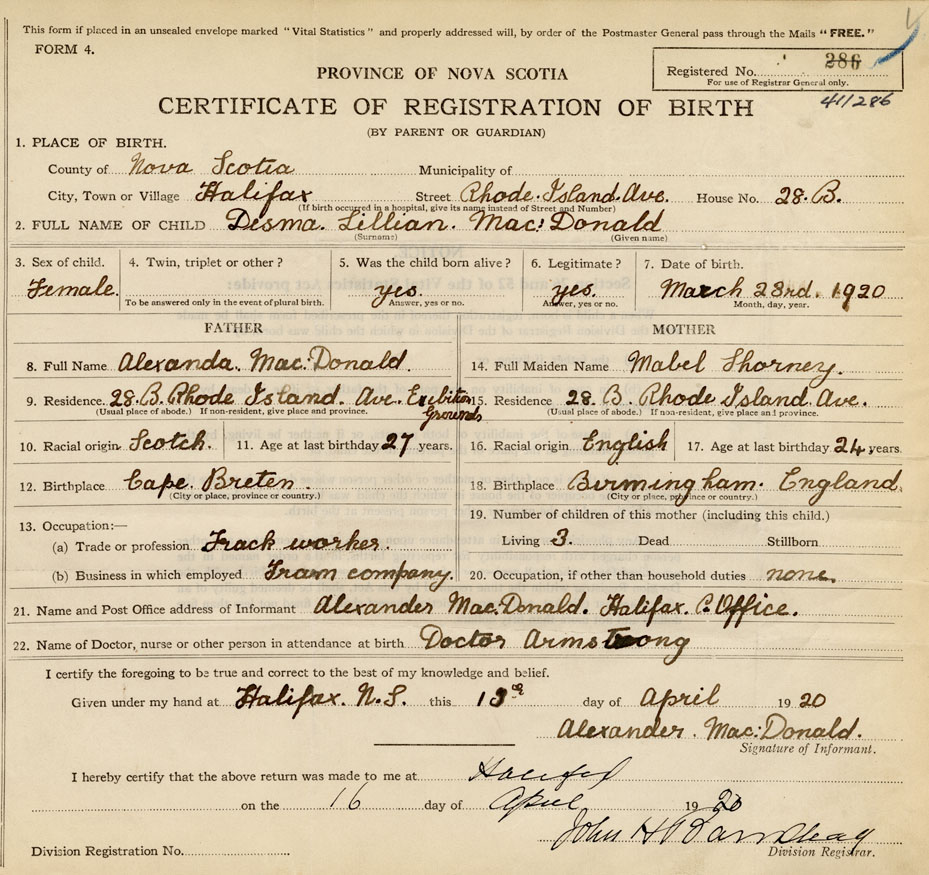 This form if placed in an unsealed envelope marked "Vital Statistics" and properly addressed will, by order of the Postmaster General pass through the Mails "FREE."
FORM 4.
PROVINCE OF NOVA SCOTIA
Registered No. 286
For use of Registrar General only.
411286
CERTIFICATE OF REGISTRATION OF BIRTH
(BY PARENT OR GUARDIAN)
1. PLACE OF BIRTH.
County of Nova Scotia Municipality of
City, Town or Village Halifax Street Rhode Island Ave. House No. 28. B.
(If birth occurred in a hospital, give its name instead of Street and Number)
2. FULL NAME OF CHILD Desma. Lillian. Mac: Donald
(Surname) (Given name)
3. Sex of child. 4. Twin, triplet or other? 5. Was the child born alive? 6. Legitimate? 7. Date of birth.
Female. yes. yes. March 23rd. 1920
To be answered only in the event of plural birth. Answer, yes or no. Answer, yes or no. Month, day, year.
FATHER MOTHER
8. Full Name Alexanda. Mac: Donald. 14. Full Maiden Name Mabel Thorney.
9. Residence. 28. B. Rhode Island. Ave. Exibition Grounds 15. Residence 28. B. Rhode Island Ave.
(Usual place of abode.) If non-resident, give place and province. (Usual place of abode.) If non-resident, give place and province.
10. Racial origin Scotch. 11. Age at last birthday 27 years. 16. Racial origin English 17. Age at last birthday 24 years.
12. Birthplace Cape. Breten. 18. Birthplace Birmingham. England.
(City or place, province or country.) (City or place, province or country.)
13. Occupation:— 19. Number of children of this mother (including this child.)
(a) Trade or profession Track worker. Living 3. Dead Stillborn
(b) Business in which employed Tram company. 20. Occupation, if other than household duties none.
21. Name and Post Office address of Informant Alexander Mac: Donald. Halifax. P. Office.
22. Name of Doctor, nurse or other person in attendance at birth Doctor Armstrong
I certify the foregoing to be true and correct to the best of my knowledge and belief.
Given under my hand at Halifax. N.S. this 13th day of April 1920
Alexander. Mac: Donald.
Signature of Informant.
I hereby certify that the above return was made to me at Halifax
on the 16 day of April 1920
John H
Division Registration No. Division Registrar.